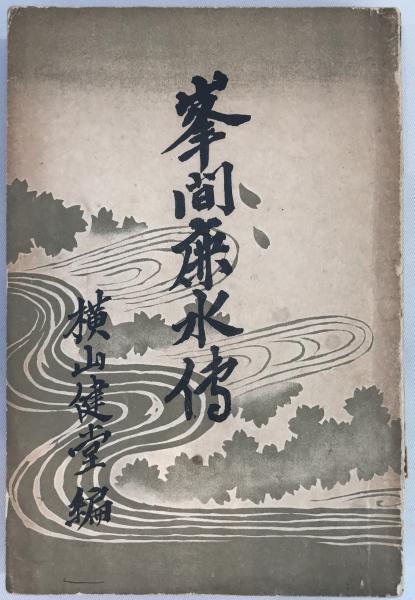 峯間鹿水傳
横山健堂編